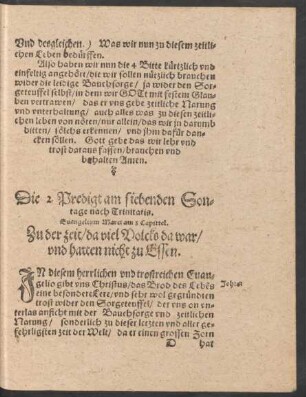 Vnd desgleichen.) Was wir nun zu diesem zeitli-
chen Leben bedürffen.
Also haben wir nun die 4 Bitte kürtzlich vnd
einfeltig angehört/die wir sollen nützlich brauchen
wider die leidige Bauchsorge/ja wider den Sor-
geteuffel selbst/in dem wir GOtt mit festem Glau-
ben vertrawen/das er vns gebe zeitliche Narung
vnd vnterhaltung/auch alles was zu diesem zeitli-
chen leben von nöten/nur allein/das wir jn darumb
bitten/solchs erkennen/vnd jhm dafür dan-
cken sollen. Gott gebe das wir lehr vnd
trost daraus fassen/brauchen vnd
behalten Amen.
Die 2 Predigt am siebenden Son-
tage nach Trinitatis.
Euangelium Marci am 8 Capittel.
Zu der zeit/da viel Volcks da war/
vnd hatten nicht zu Essen.
IN diesem herrlichen vnd trostreichen Euan-
gelio gibt vns Christus/das Brod des Lebēs
eine besondere Lere/vnd sehr wol gegründten
trost wider den Sorgeteuffel/der vns on vn-
terlas anficht mit der Bauchsorge vnd zeitlichen
Narung/sonderlich zu dieser letzten vnd aller ge-
fehrligsten zeit der Welt/da er einen grossen Zorn
D hat
Johan: